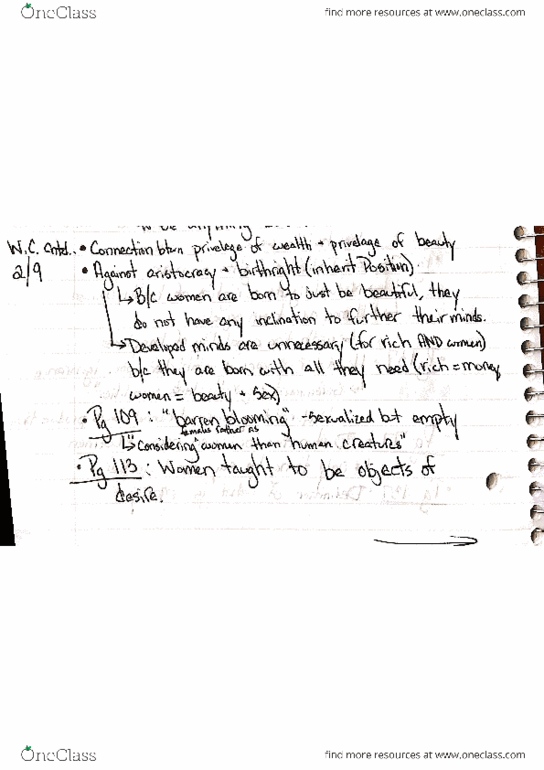 OneClass find more resources at www.oneclass.com
W.C. Cntd.. • Connection btwn privelege of wealth + privelage of beauty
2/9 • Against aristocracy + birthright (inherit Position)
↳ B/c women are born to just be beautiful, they
do not have any inclination to further their minds.
→ Developed minds are unnecessary (for rich AND women)
b/c they are born with all they need (rich = money
women = beauty + sex)
• Pg 109 : "barren blooming" - sexualized but empty
females rather as
↳ "Considering women than "human creatures"
• Pg 113 : Women taught to be objects of
desire.
OneClass find more resources at www.oneclass.com